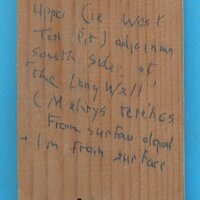 Upper (ie West
Test Pit) adjoining
south side of
"The Long Wall"
(
From surface
1m from surface